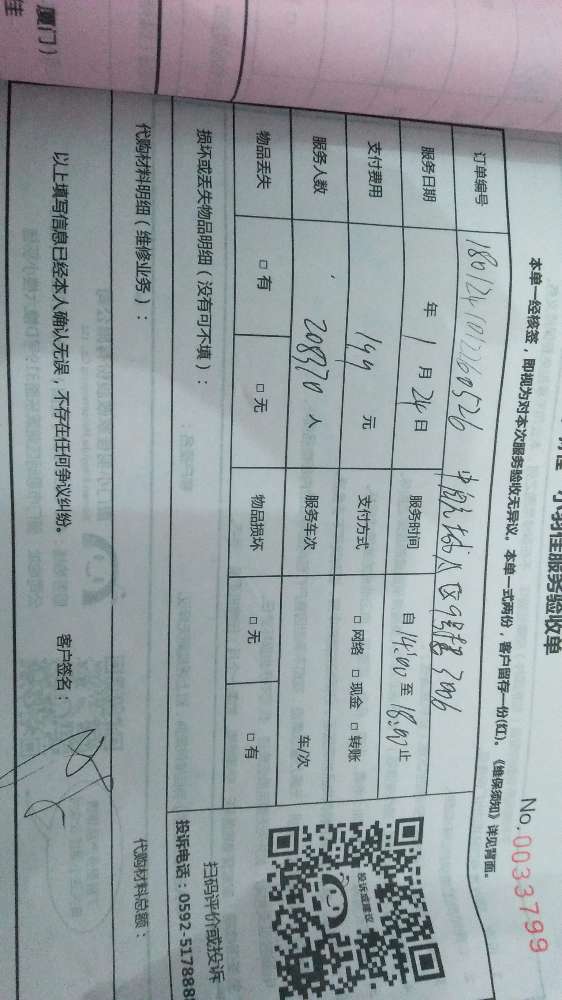 厦门）
佳
小羽佳服务验收单
No.0033799
本单一经核签，即视为对本次服务验收无异议。本单一式两份，客户留存一份(红)。《维保须知》详见背面。
订单编号
服务日期 年 1 月 24 日 服务时间 自 14:00 至 18:00 止
支付费用 144 元 支付方式 □ 网络 □ 现金 □ 转账
服务人数 208370 人 服务车次 车/次
物品丢失 □ 有 □ 无 物品损坏 □ 无 □ 有
投诉或建议
扫码评价或投诉
投诉电话：0592-5178888
损坏或丢失物品明细（没有可不填）：
代购材料明细（维修业务）： 代购材料总额：
以上填写信息已经本人确认无误，不存在任何争议纠纷。 客户签名：